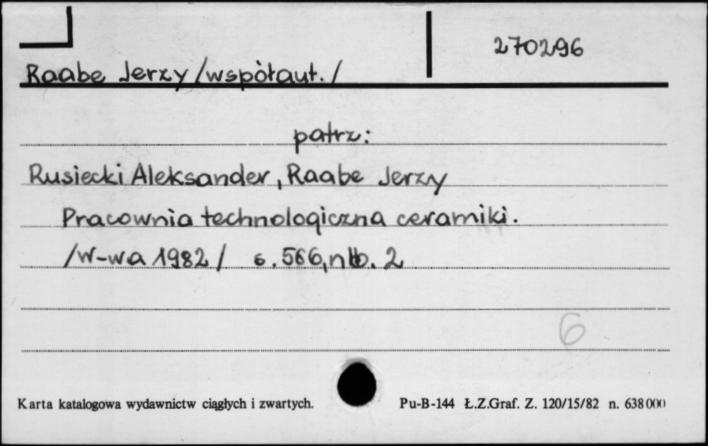 270296
Raabe Jerzy /współaut./
patrz:
Rusiecki Aleksander, Raabe Jerzy
Pracownia technologiczna ceramiki.
/W-wa 1982/ s. 566, nlb. 2
6
Karta katalogowa wydawnictw ciągłych i zwartych. Pu-B-144 Ł.Z.Graf. Z. 120/15/82 n. 638000